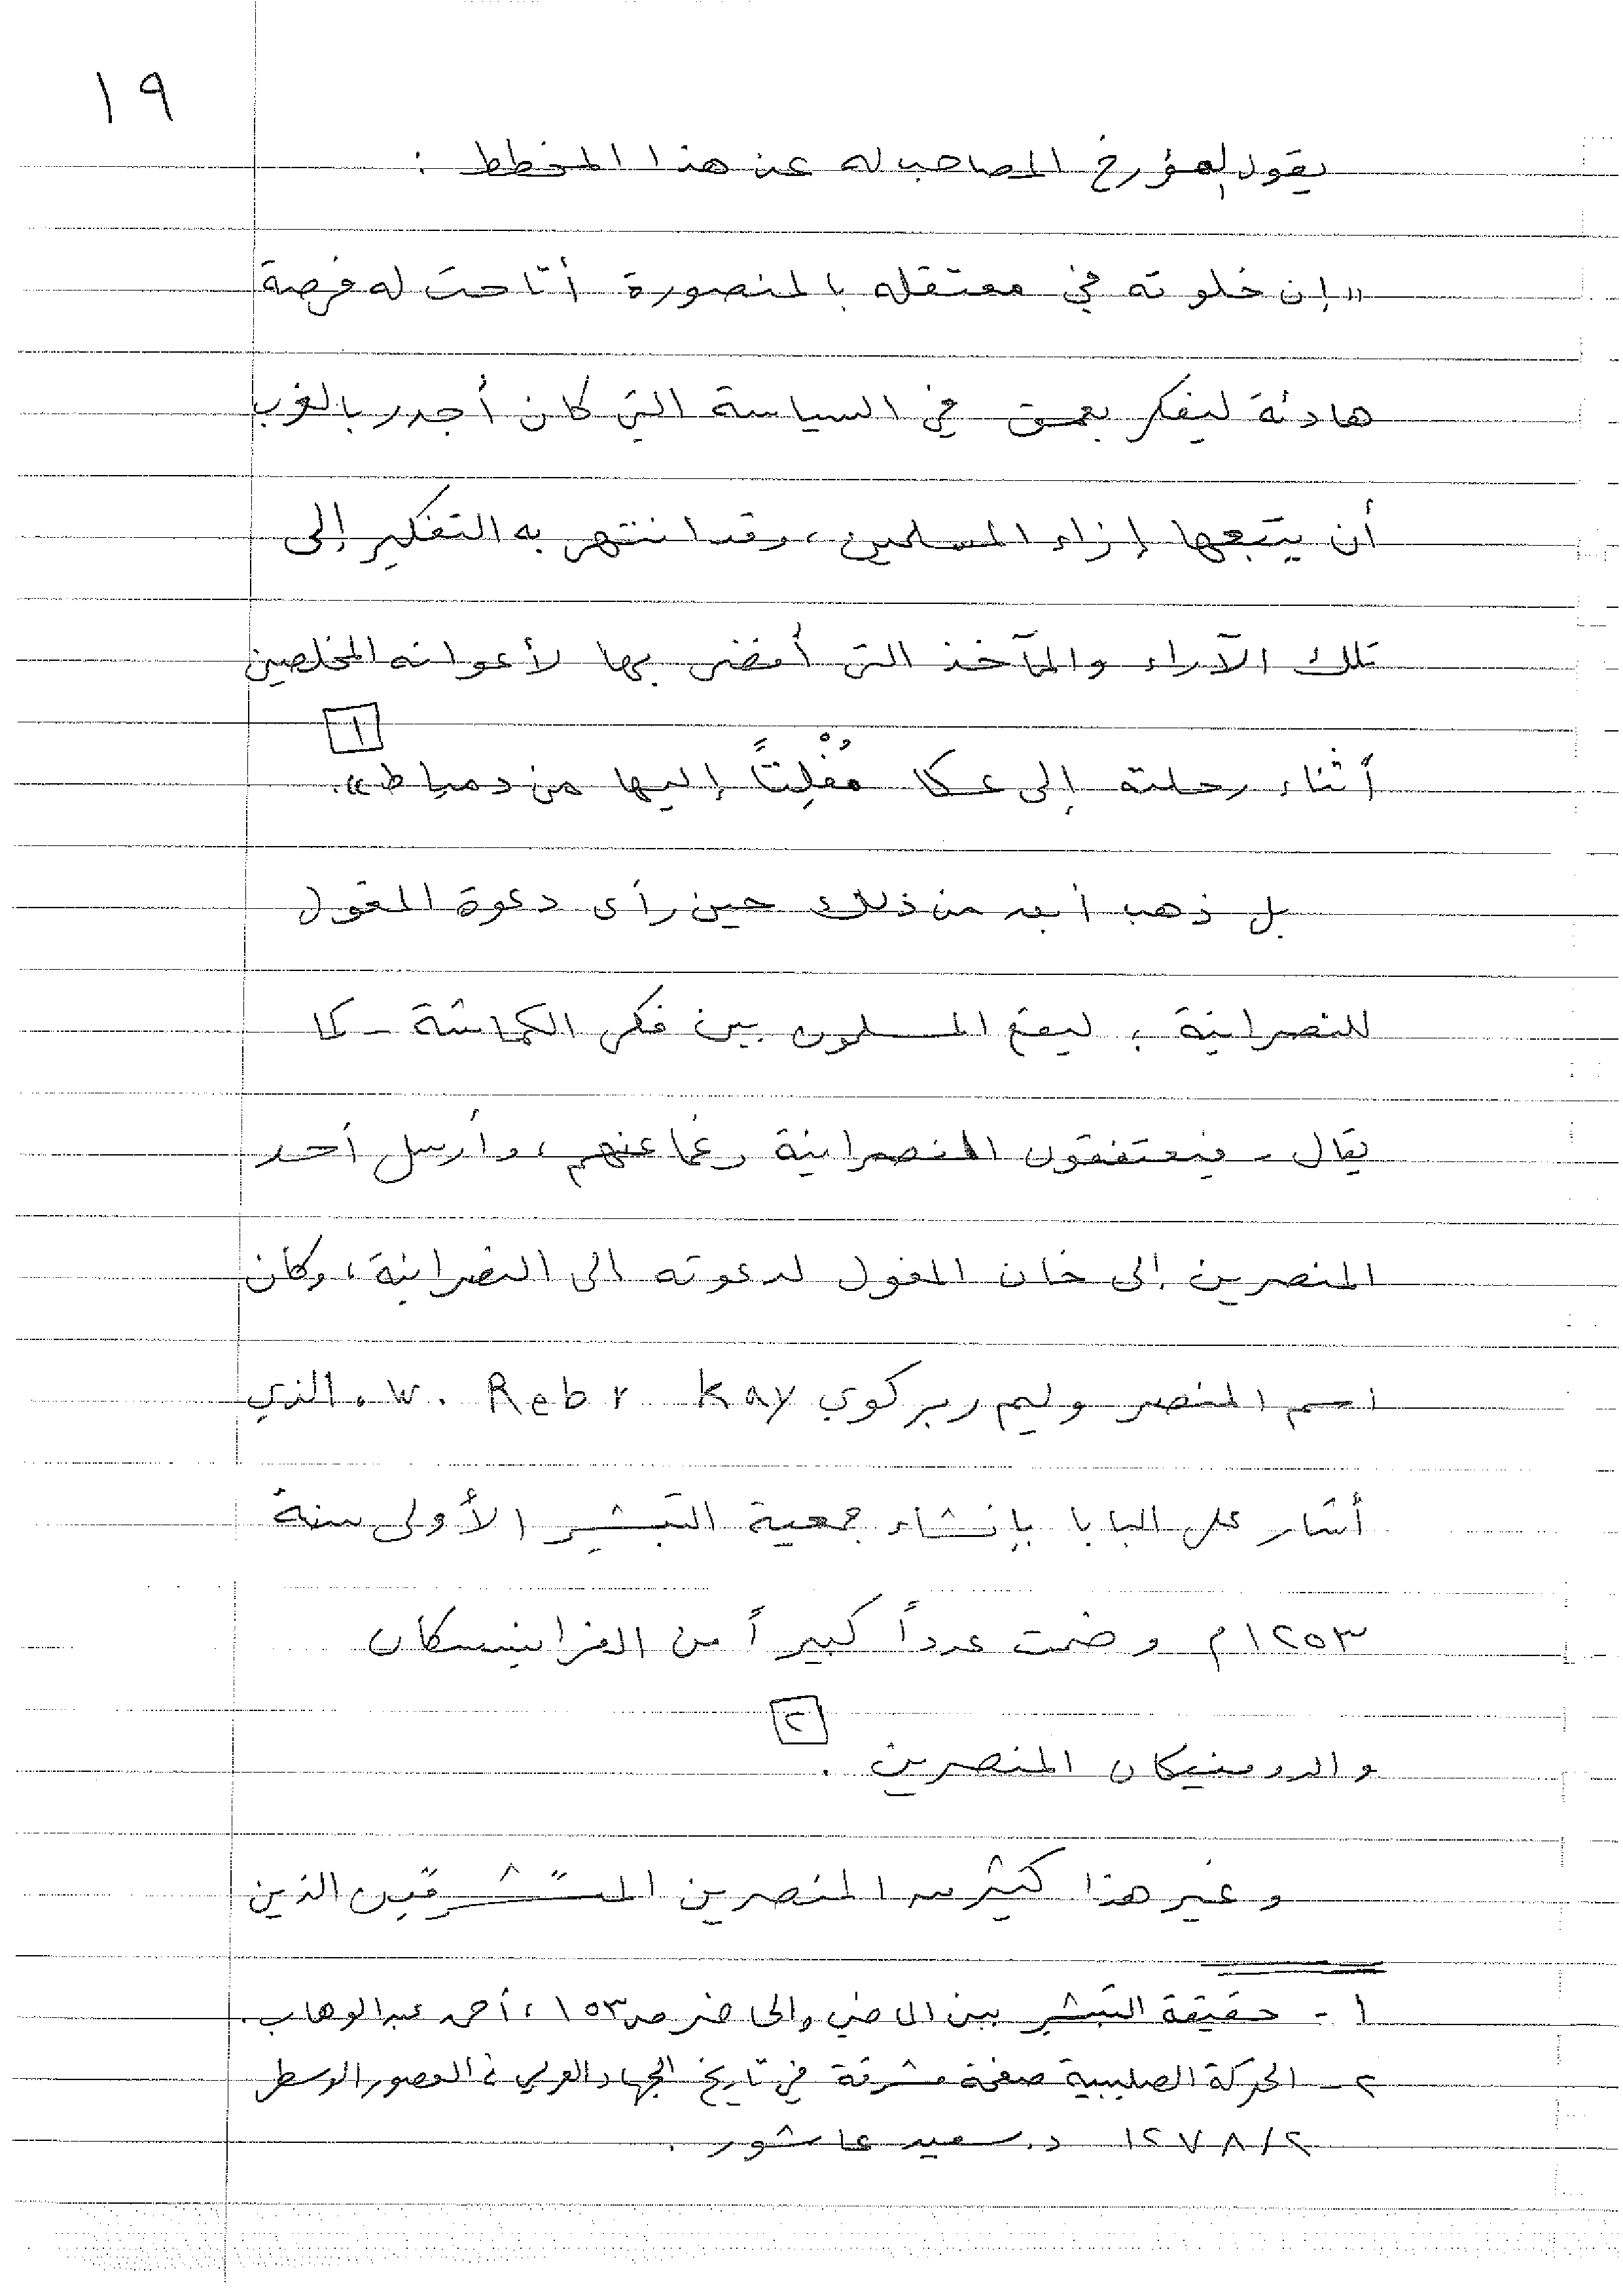 ١٩
يقول المؤرخ المصاحب له عن هذا المخطط :
«إن خلوته في معتقله بالمنصورة أتاحت له فرصة
هادئة ليفكر بعمق في السياسة التي كان أجدر بالغرب
أن يتبعها إزاء المسلمين، وقد انتهى به التفكير إلى
تلك الآراء والمآخذ التى أفضى بها لأعوانه المخلصين
أثناء رحلته إلى عكا مُفْلِتاً إليها من دمياط». [١]
بل ذهب أبعد من ذلك حين رأى دعوة المغول
للنصرانية ، ليقع المسلمون بين فكى الكماشة - كما
يقال - فيعتنقون النصرانية رغماً عنهم، وأرسل أحد
المنصرين إلى خان المغول لدعوته الى النصرانية، وكان
اسم المنصر وليم ربركوي W. Rebr Kay، الذي
أشار على البابا بإنشاء جمعية التبشير الأولى سنة
١٢٥٣م وضمت عدداً كبيراً من الفرانيسكان
والدومنيكان المنصرين . [٢]
وغير هذا كثير من المنصرين المستشرقين الذين
١ - حقيقة التبشير بين الماضي والحاضر ص١٥٣، أحمد عبدالوهاب.
٢ - الحركة الصليبية صفحة مشرقة في تاريخ الجهاد العربي في العصور الوسطى
١٢٧٨/٢ د. سعيد عاشور .